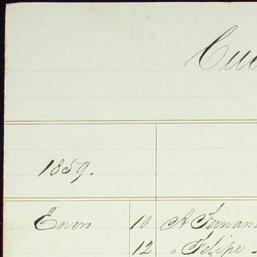 1859.
Enero 10 A Fernan
12 " Felipe